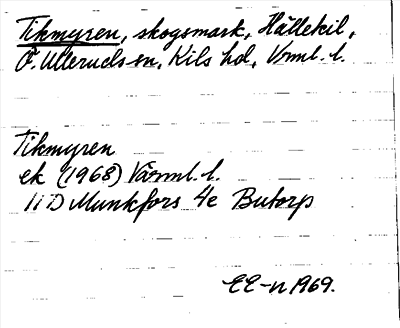 Tikmyren, skogsmark, Hällekil,
Ö. Ulleruds sn, Kils hd, Värml. l.
Tikmyren
ek (1968) Värml. l.
11D Munkfors 4e Butorp
EE-n 1969.